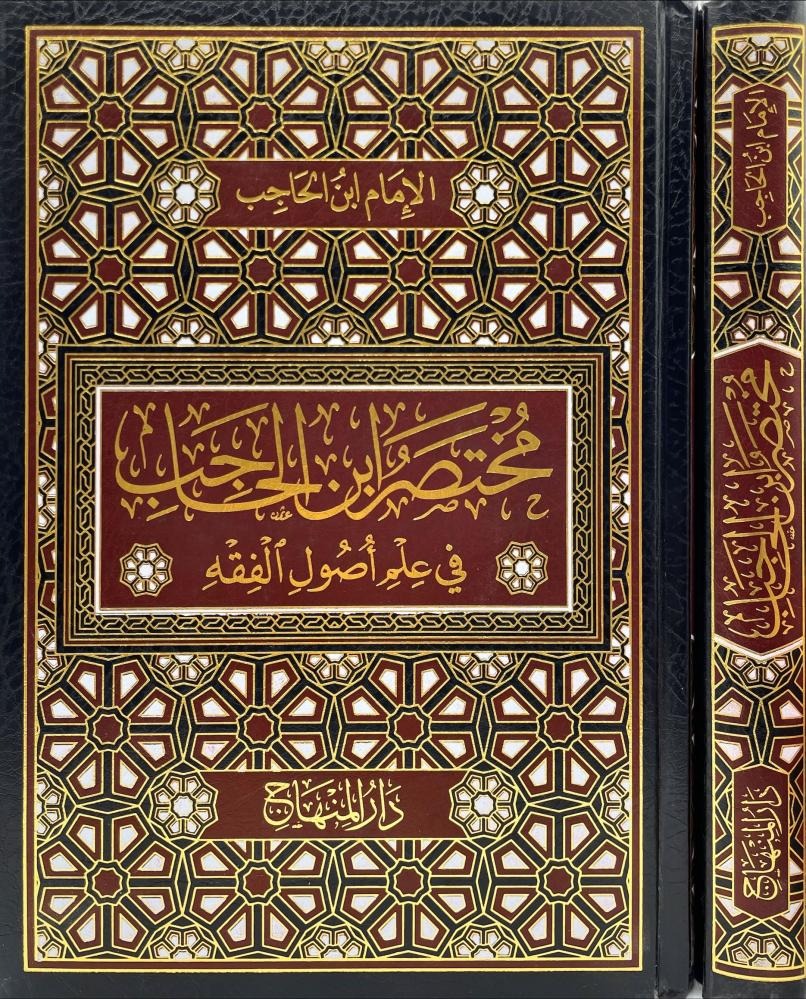 الإمام ابن الحاجب
مُخْتَصَرُ ابن الحَاجِبِ
في عِلْمِ أُصُولِ الْفِقْهِ
دَارُ المِنْهَاجِ
الإمام ابن الحاجب
مُخْتَصَرُ ابن الحَاجِبِ
دَارُ المِنْهَاجِ